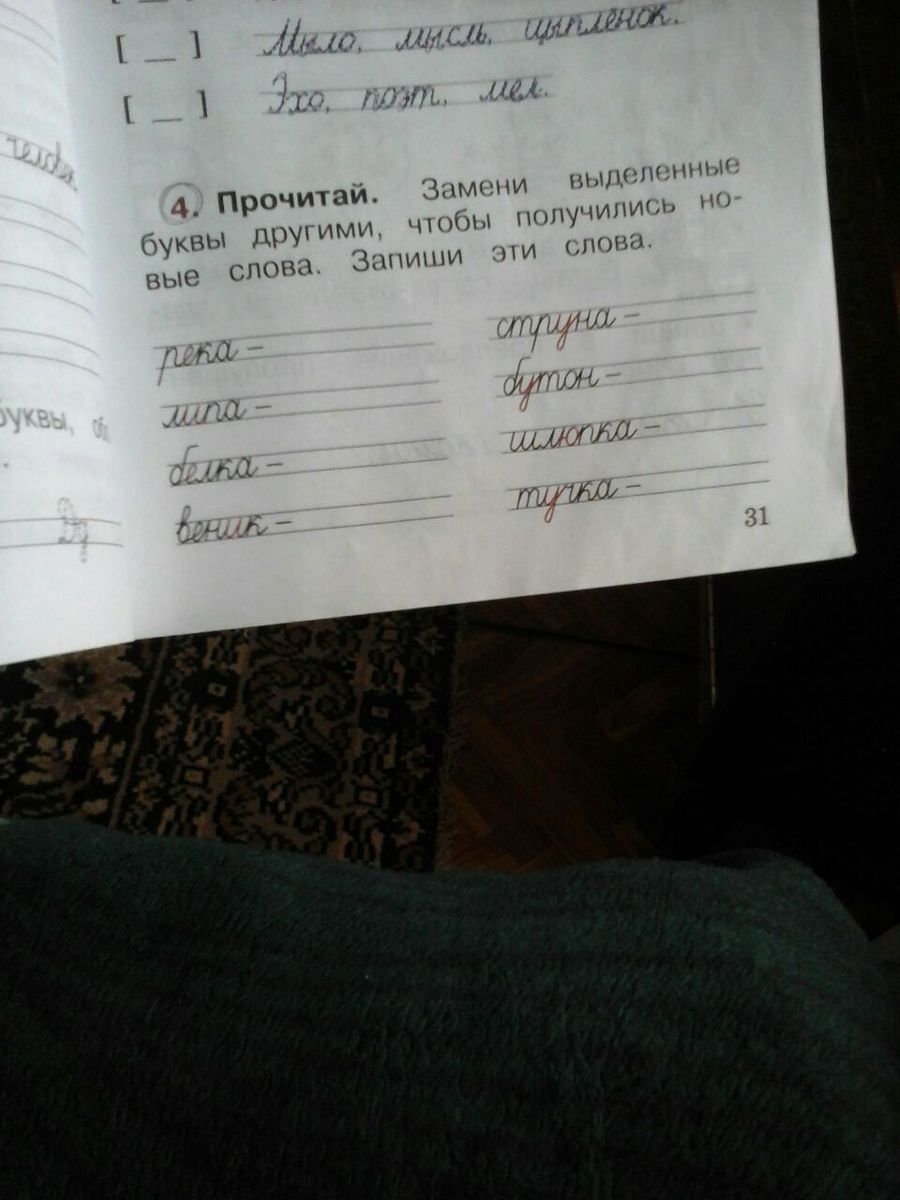 [ _ ] Мыло, мысль, цыплёнок.
[ _ ] Эхо, поэт, мел.
челове
4. Прочитай. Замени выделенные
буквы другими, чтобы получились но-
вые слова. Запиши эти слова.
река –
струна –
липа –
бутон –
буквы,
белка –
шлюпка –
веник –
тучка –
31